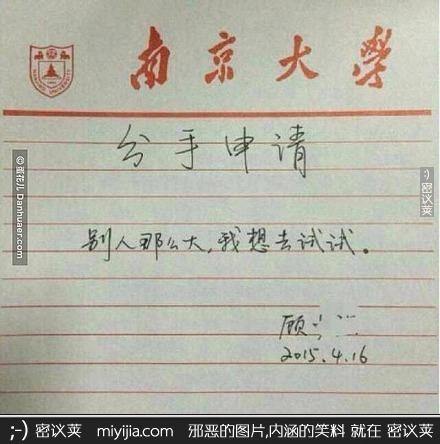 南京大學
分手申请
别人那么大，我想去试试。
顾
2015.4.16
@蛋花儿 Danhuaer.com
:) 密议荚
;-) 密议荚 miyijia.com 邪恶的图片,内涵的笑料 就在 密议荚